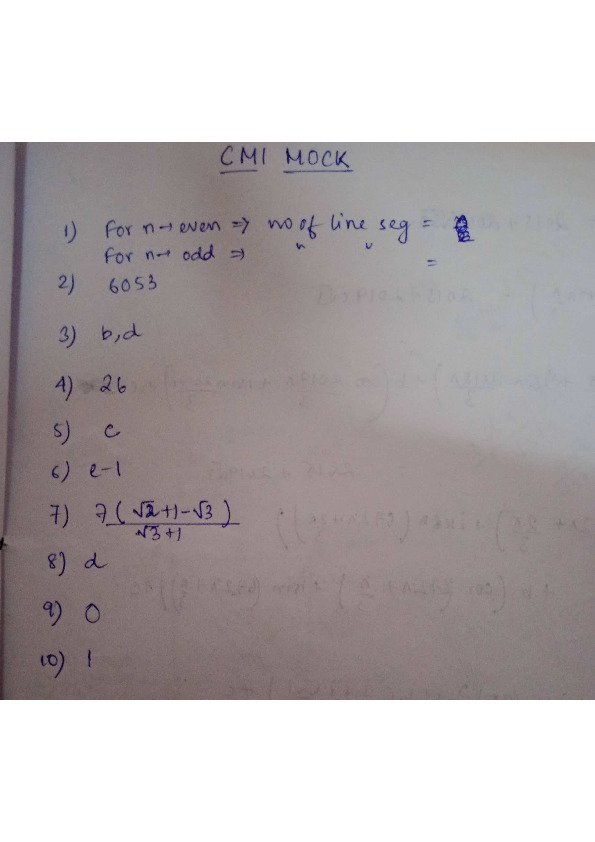 CMI MOCK
1) For n→even ⇒ no of line seg =
For n→ odd ⇒ " " =
2) 6053
3) b,d
4) 26
5) c
6) e-1
7) 7(√2+1-√3)/√3+1
8) d
9) 0
10) 1